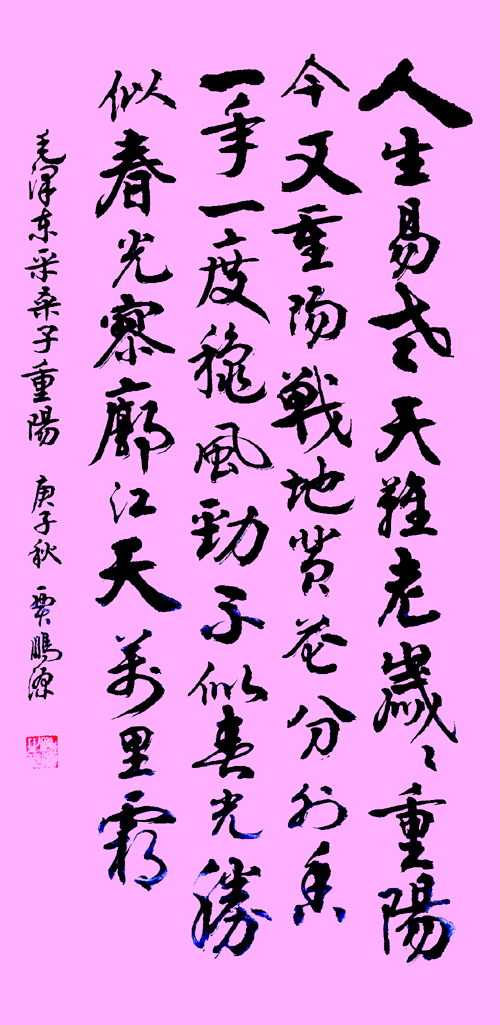 人生易老天難老歲々重陽
今又重陽戰地黄花分外香
一年一度穐風勁不似春光勝
似春光寥廓江天萬里霜
毛澤东采桑子重陽 庚子秋 鵬源